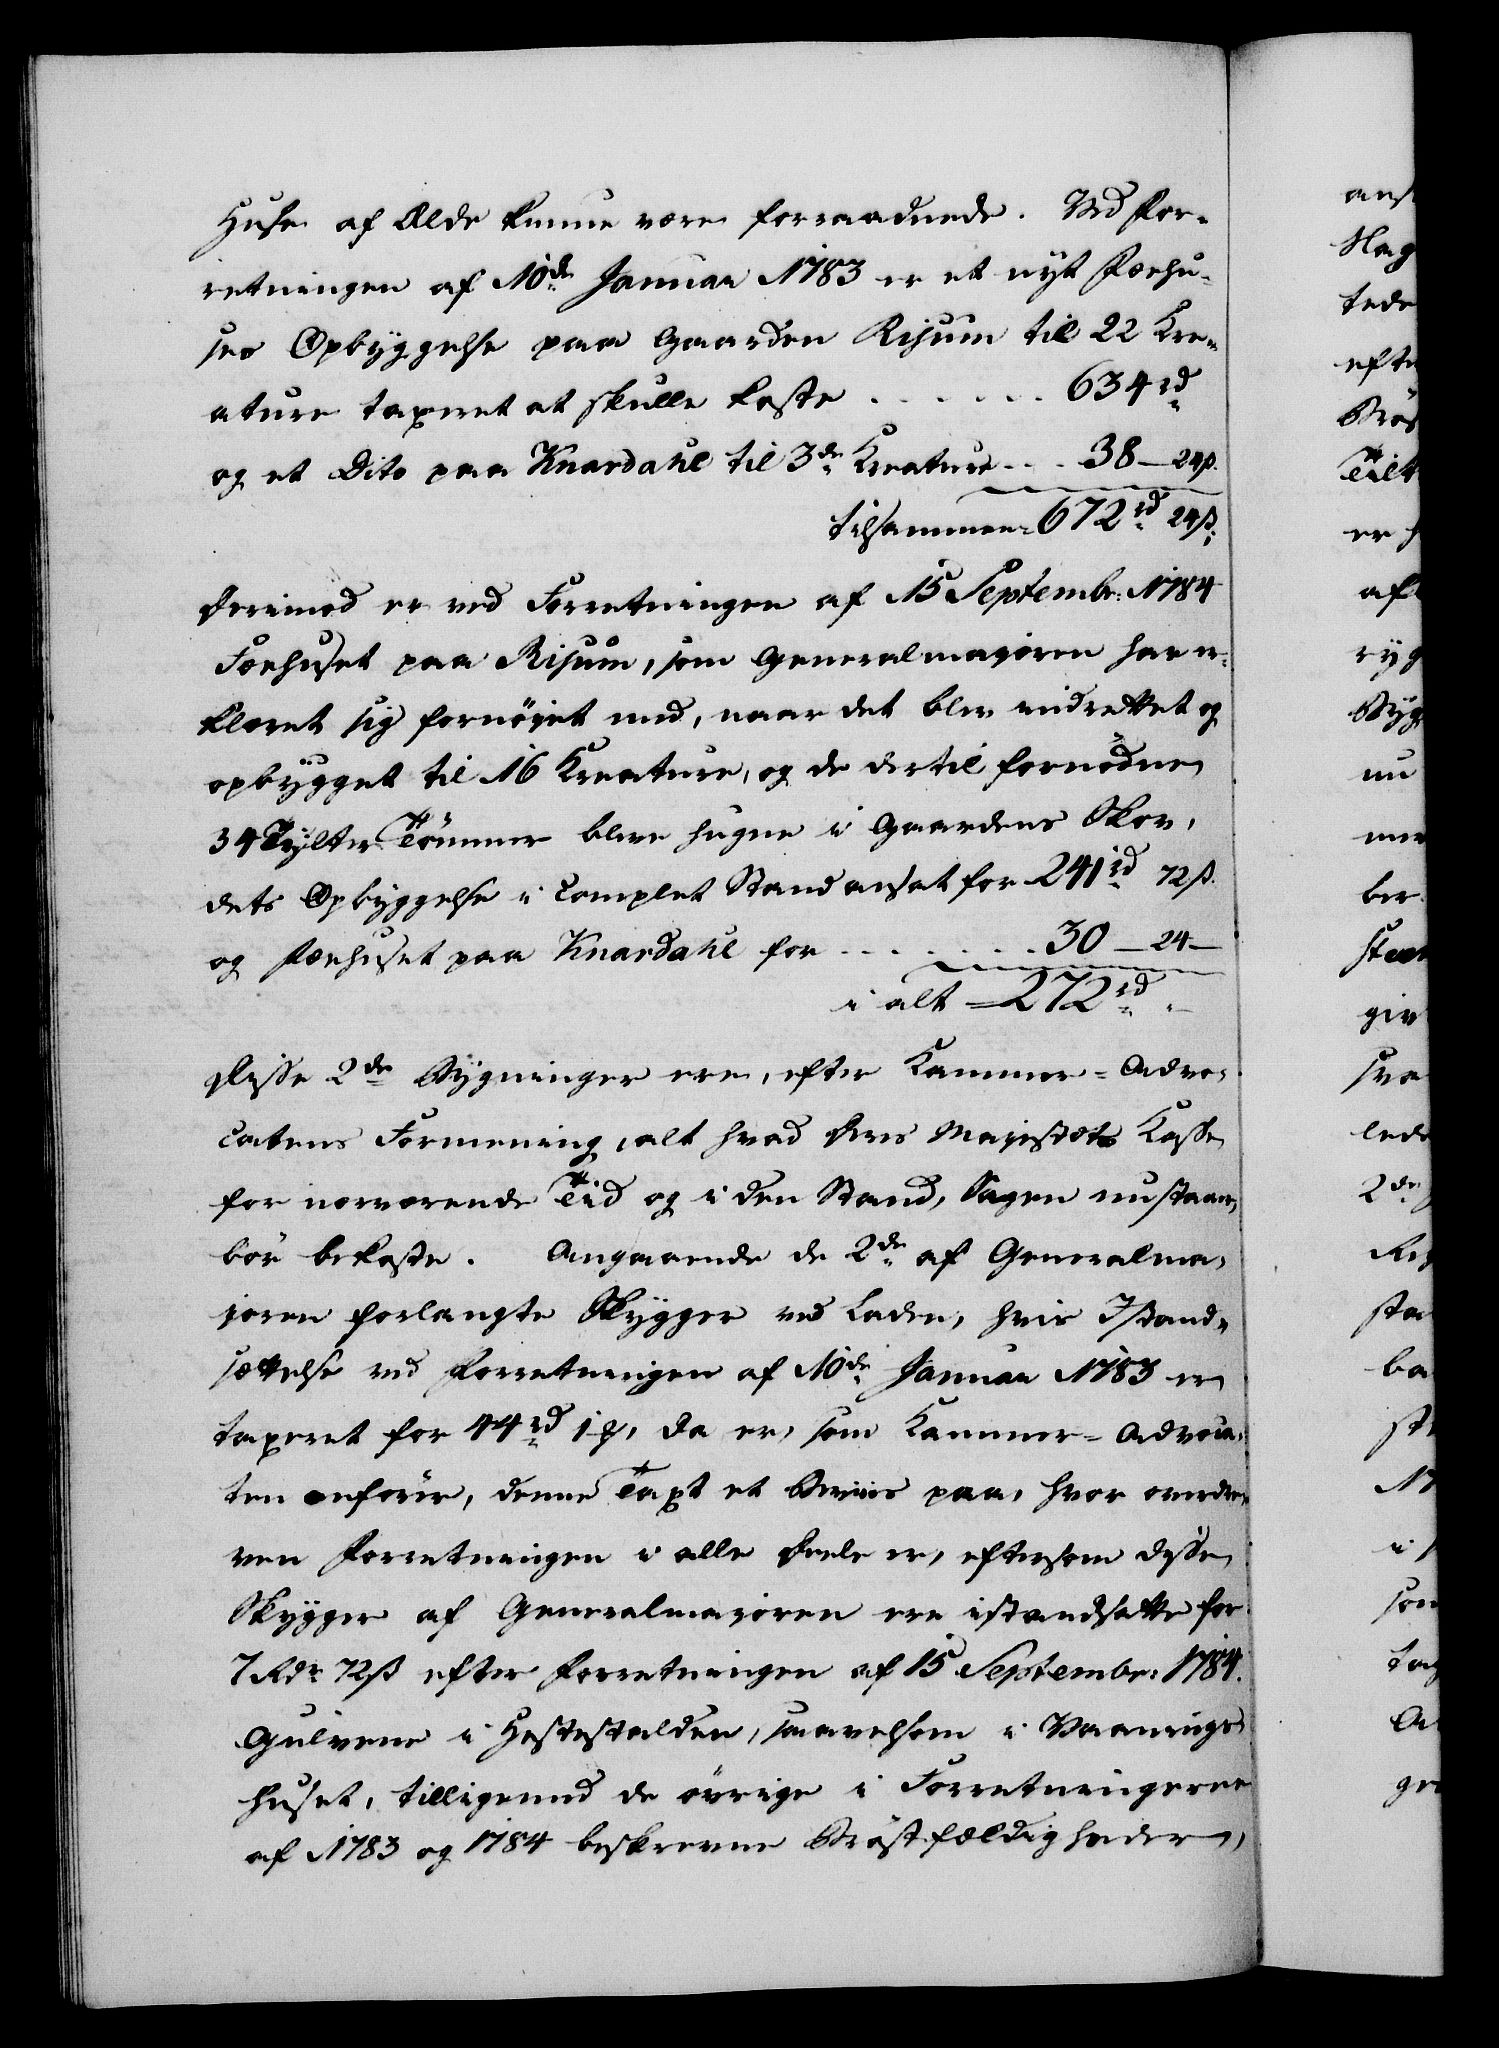 Huse af Ælde kunne være forraadnede. Ved For-
retningen af 10de Januar 1783 er et nyt Fæehu-
ses Opbyggelse paa Gaarden Risum til 22 Kre-
ature taxeret at skulle koste . . . . . . 634 rd
og et Dito paa Knardahl til 3de Kreature . . . 38 — 24 ß.
tilsammen = 672 rd 24 ß;
derimod er ved Forretningen af 15 Septembr: 1784
Fæehuset paa Risum, som Generalmajoren har er-
klæret sig fornöjet med, naar det blev indrettet og
opbygget til 16 Kreature, og de dertil fornödne
34 Tylter Tömmer bleve hugne i Gaardens Skov,
dets Opbyggelse i complet Stand ansat for 241 rd 72 ß.
og Fæehuset paa Knardahl for . . . . . . . 30 — 24 —
i alt = 272 rd "
Disse 2de Bygninger ere, efter Kammer = Advo-
catens Formening, alt hvad Deres Majestæts Kasse
for nærværende Tid og i den Stand, Sagen nu staaer,
bör bekoste. Angaaende de 2de af Generalma-
joren forlangte Skygger ved Laden, hvis Istand-
sættelse ved Forretningen af 10de Januar 1783 er
taxeret for 44 rd 1 ß, da er, som Kammer = Advoca-
ten anförer, denne Taxt et Beviis paa, hvor overdre-
ven Forretningen i alle Deele er, eftersom disse
Skygger af Generalmajoren ere istandsatte for
7 Rdr 72 ß efter Forretningen af 15 Septembr: 1784.
Gulvene i Hestestalden, saavelsom i Vaanings
huset, tilligemed de övrige i Forretningerne
af 1783 og 1784 beskrevne Bröstfældigheder,